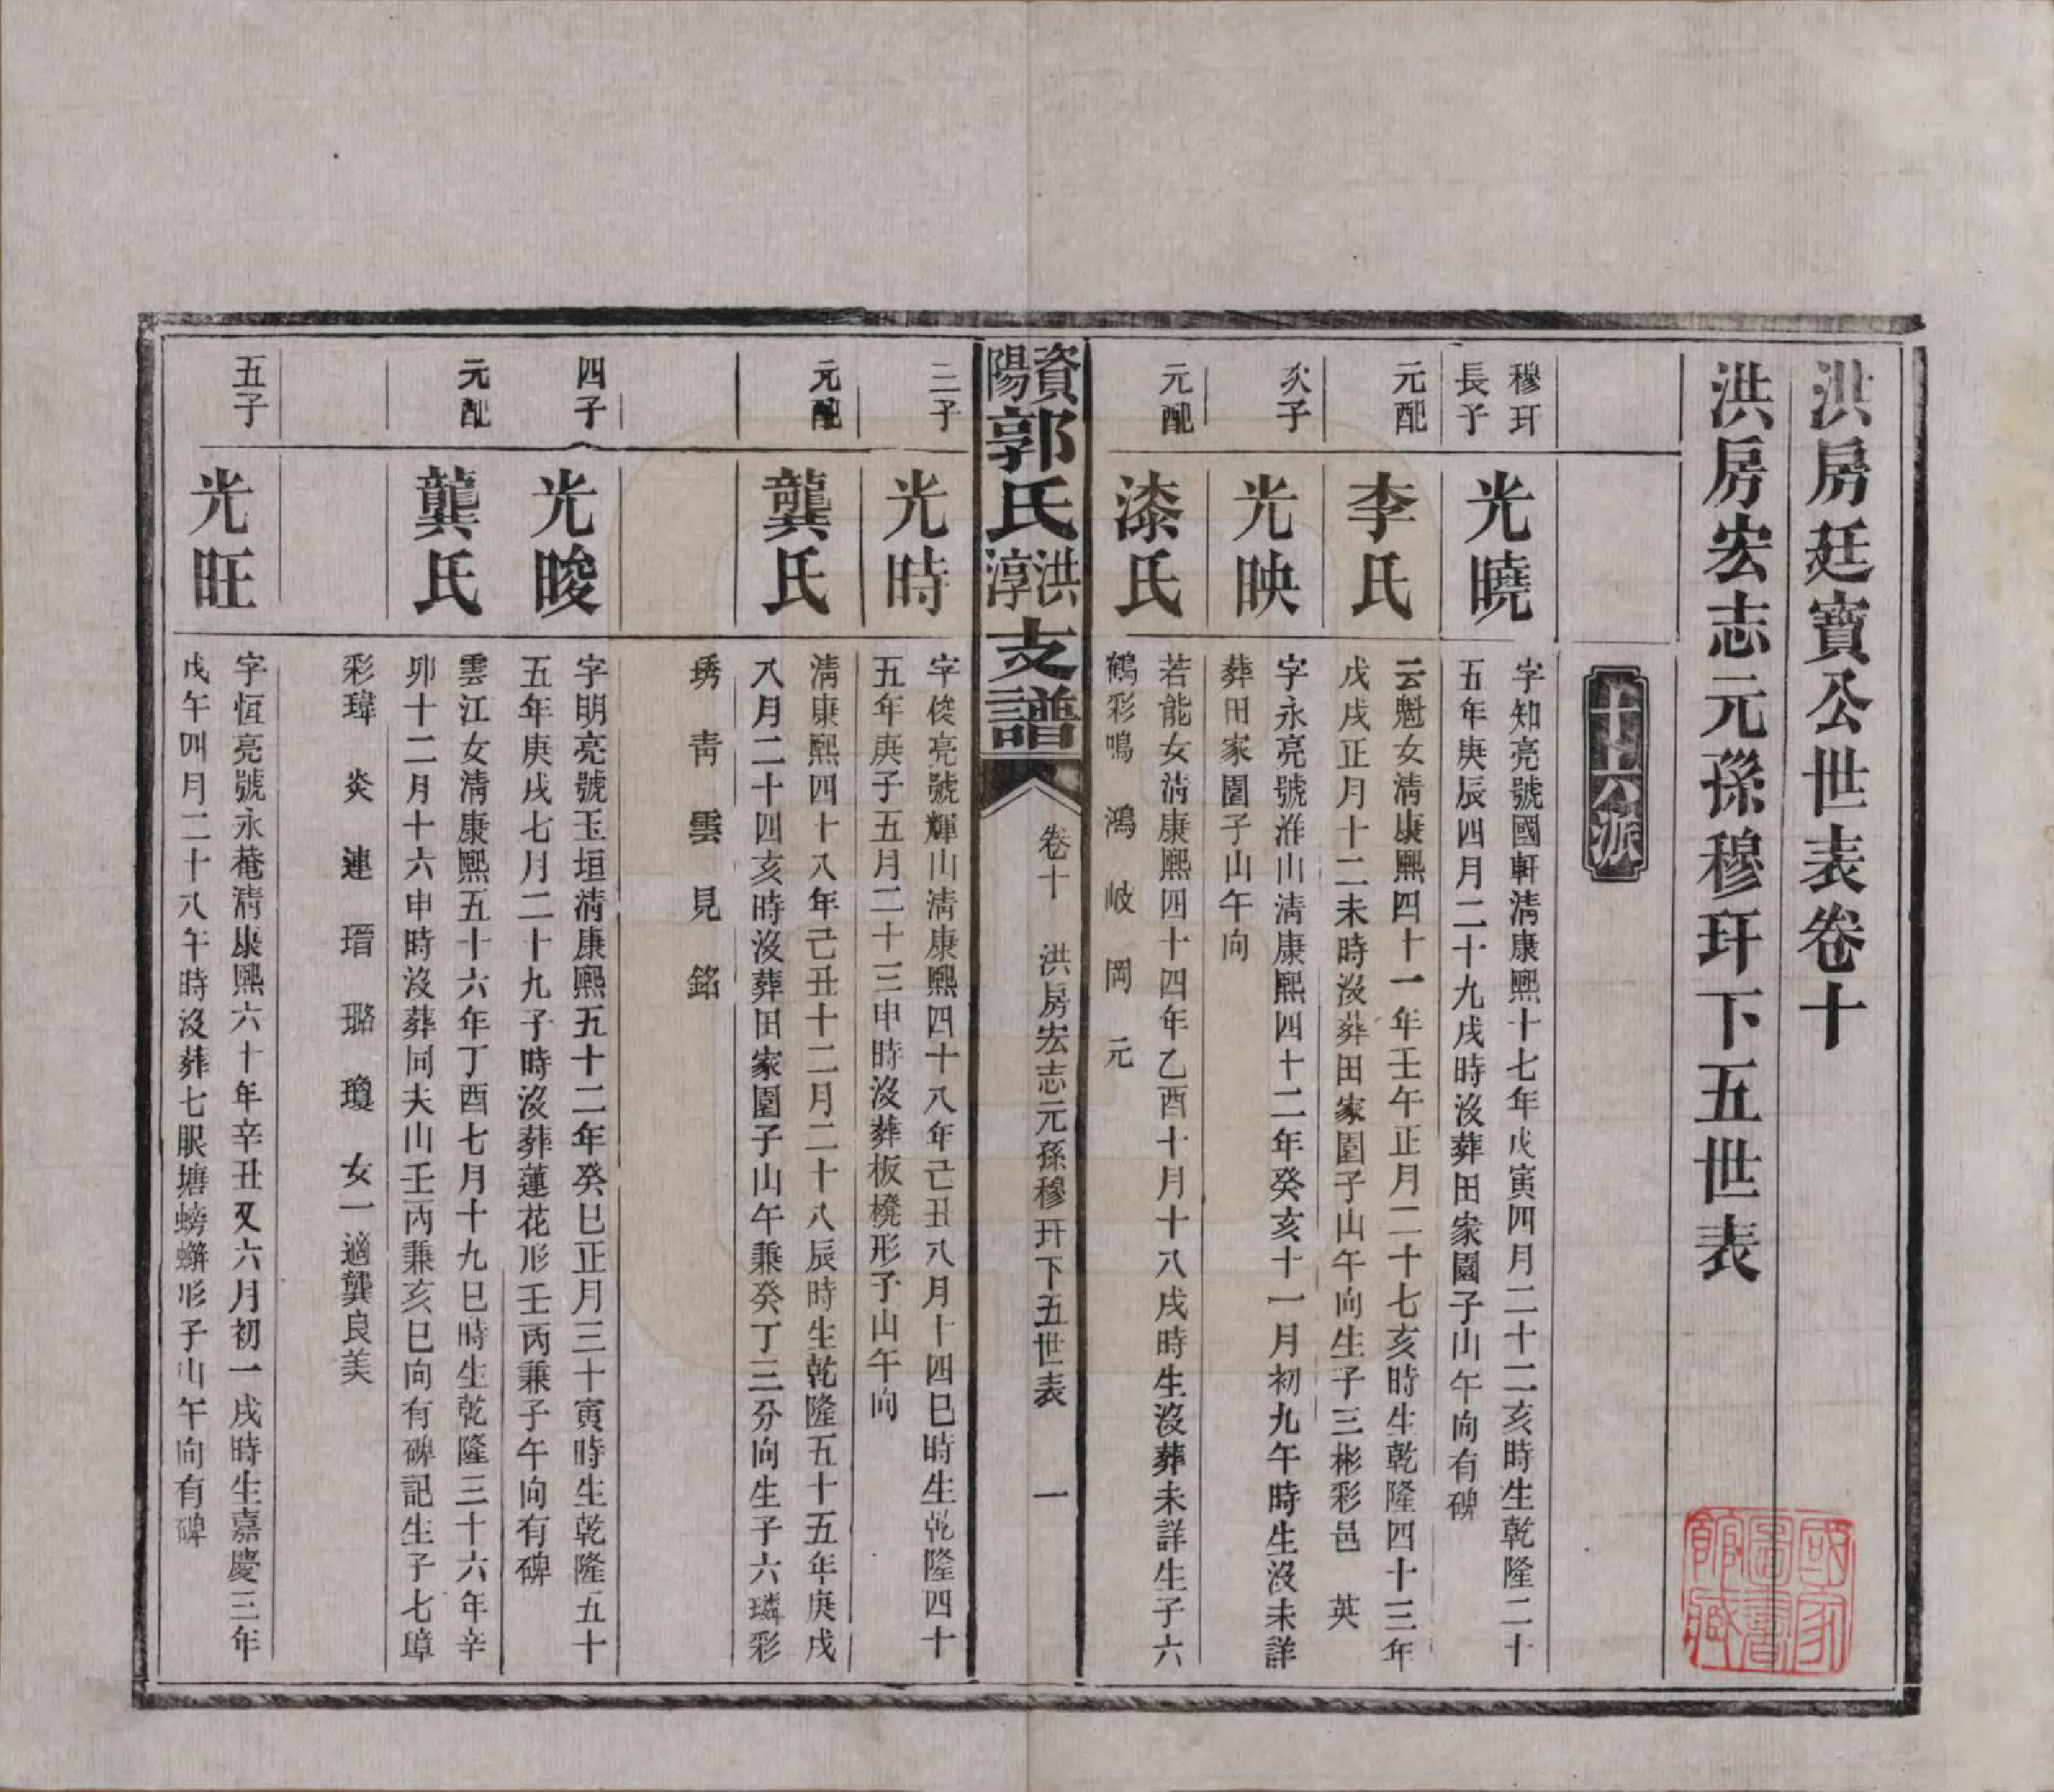 洪房廷寶公世表卷十
洪房宏志元孫穆玕下五世表
十六派
穆玕
長子
光曉
字知亮號國軒清康熙十七年戊寅四月二十二亥時生乾隆二十
五年庚辰四月二十九戌時沒葬田家園子山午向有碑
元配
李氏
云魁女清康熙四十一年壬午正月二十七亥時生乾隆四十三年
戊戌正月十二未時沒葬田家園子山午向生子三彬彩邑 英
次子
光映
字永亮號淮山清康熙四十二年癸亥十一月初九午時生沒未詳
葬田家園子山午向
元配
漆氏
若能女清康熙四十四年乙酉十月十八戌時生沒葬未詳生子六
鶴彩鳴 鴻 岐 岡 元
資陽郭氏洪淳支譜
卷十 洪房宏志元孫穆玕下五世表 一
三子
光時
字俊亮號輝山清康熙四十八年己丑八月十四巳時生乾隆四十
五年庚子五月二十三申時沒葬板櫈形子山午向
元配
龔氏
清康熙四十八年己丑十二月二十八辰時生乾隆五十五年庚戌
八月二十四亥時沒葬田家園子山午兼癸丁三分向生子六璘彩
琇 靑 雲 見 銘
四子
光晙
字明亮號玉垣清康熙五十二年癸巳正月三十寅時生乾隆五十
五年庚戌七月二十九子時沒葬蓮花形壬丙兼子午向有碑
元配
龔氏
雲江女清康熙五十六年丁酉七月十九巳時生乾隆三十六年辛
卯十二月十六申時沒葬同夫山壬丙兼亥巳向有碑記生子七璋
彩瑋 炎 連 瑨 璐 瓊 女一適龔良美
五子
光旺
字恒亮號永菴清康熙六十年辛丑又六月初一戌時生嘉慶三年
戊午四月二十八午時沒葬七眼塘螃蠏形子山午向有碑
國家圖書館藏